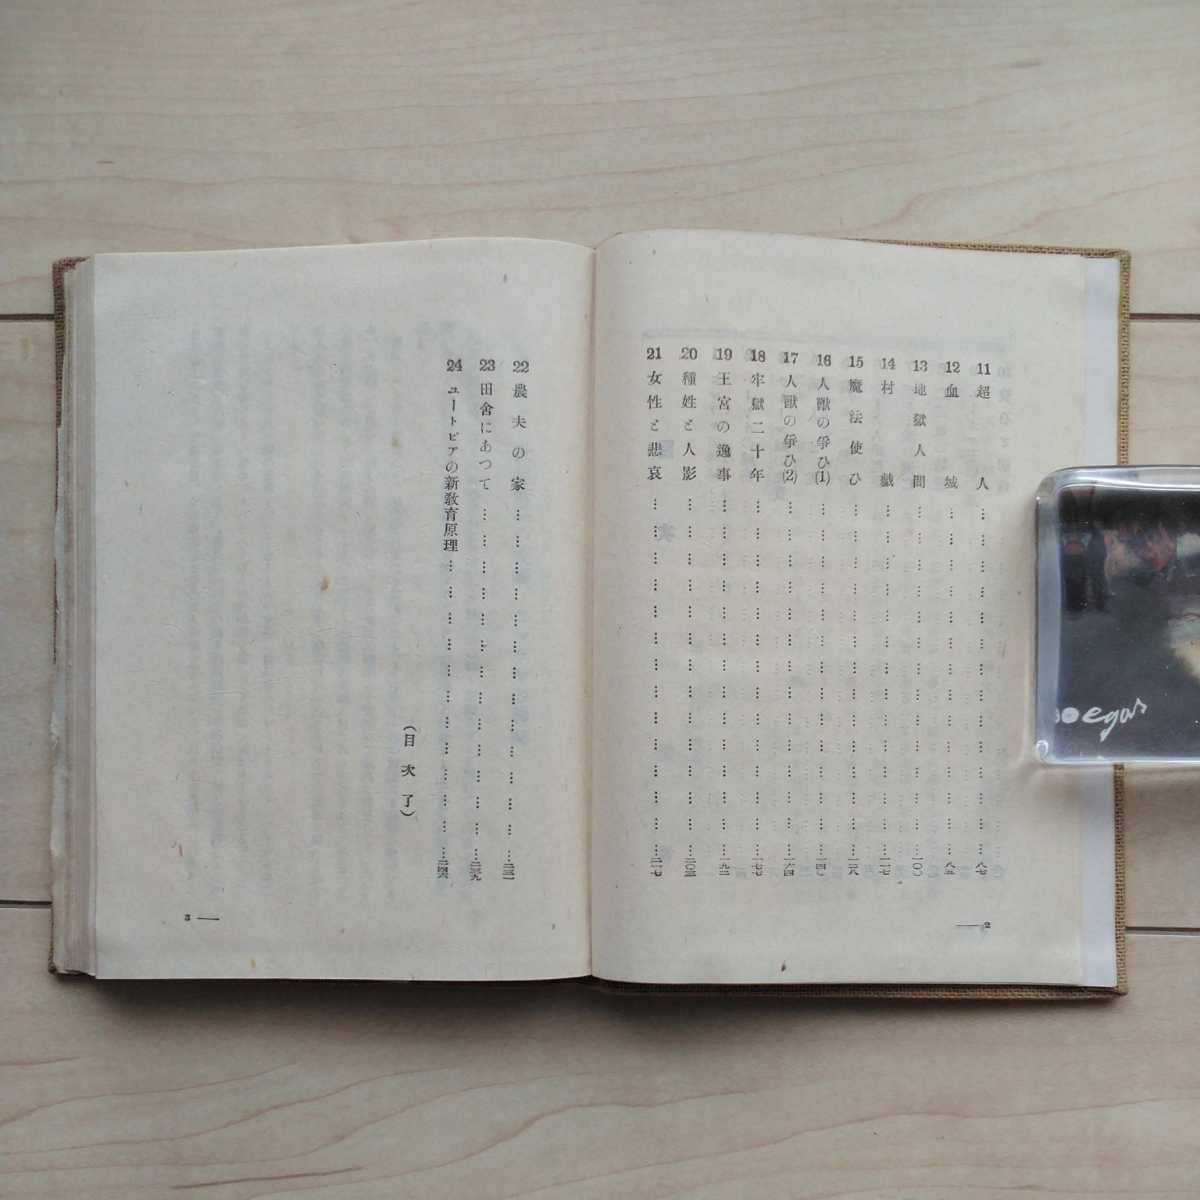 11 超人……八七
12 血城……八五
13 地獄人間……一〇〇
14 村戯……一一七
15 魔法使ひ……一二八
16 人獣の争ひ(1)……一四〇
17 人獣の争ひ(2)……一六四
18 牢獄二十年……一七七
19 王宮の逸事……一九二
20 種姓と人影……二〇三
21 女性と悲哀……二一七
2
22 農夫の家……二三一
23 田舎にあつて……二三九
24 ユートピアの新教育原理……二四六
(目次了)
3
egas